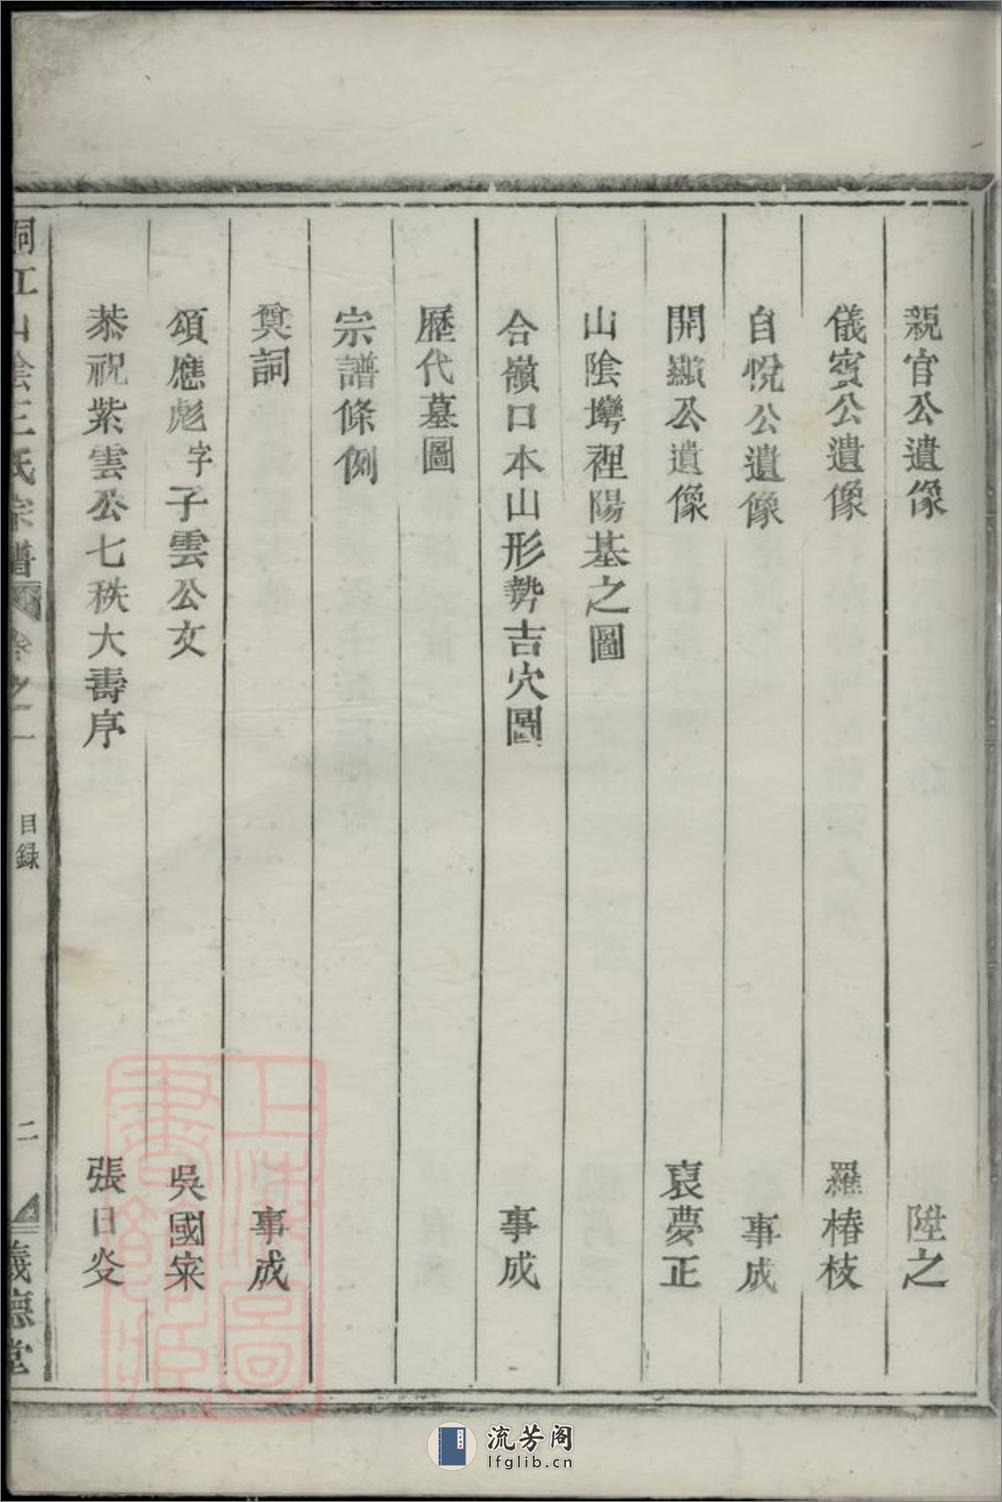 親官公遺像 陞之
儀賓公遺像 羅椿枝
自悅公遺像 事成
開巘公遺像 袁夢正
山陰塆裡陽基之圖
合嶺口本山形勢吉穴圖 事成
歷代墓圖
宗譜條例
奠詞 事成
頌應彪字子雲公文 吳國寀
恭祝紫雲公七秩大壽序 張日炎
山陰王氏宗譜 卷之一 目録 二 義德堂
上海圖書館藏
流芳阁
lfglib.cn